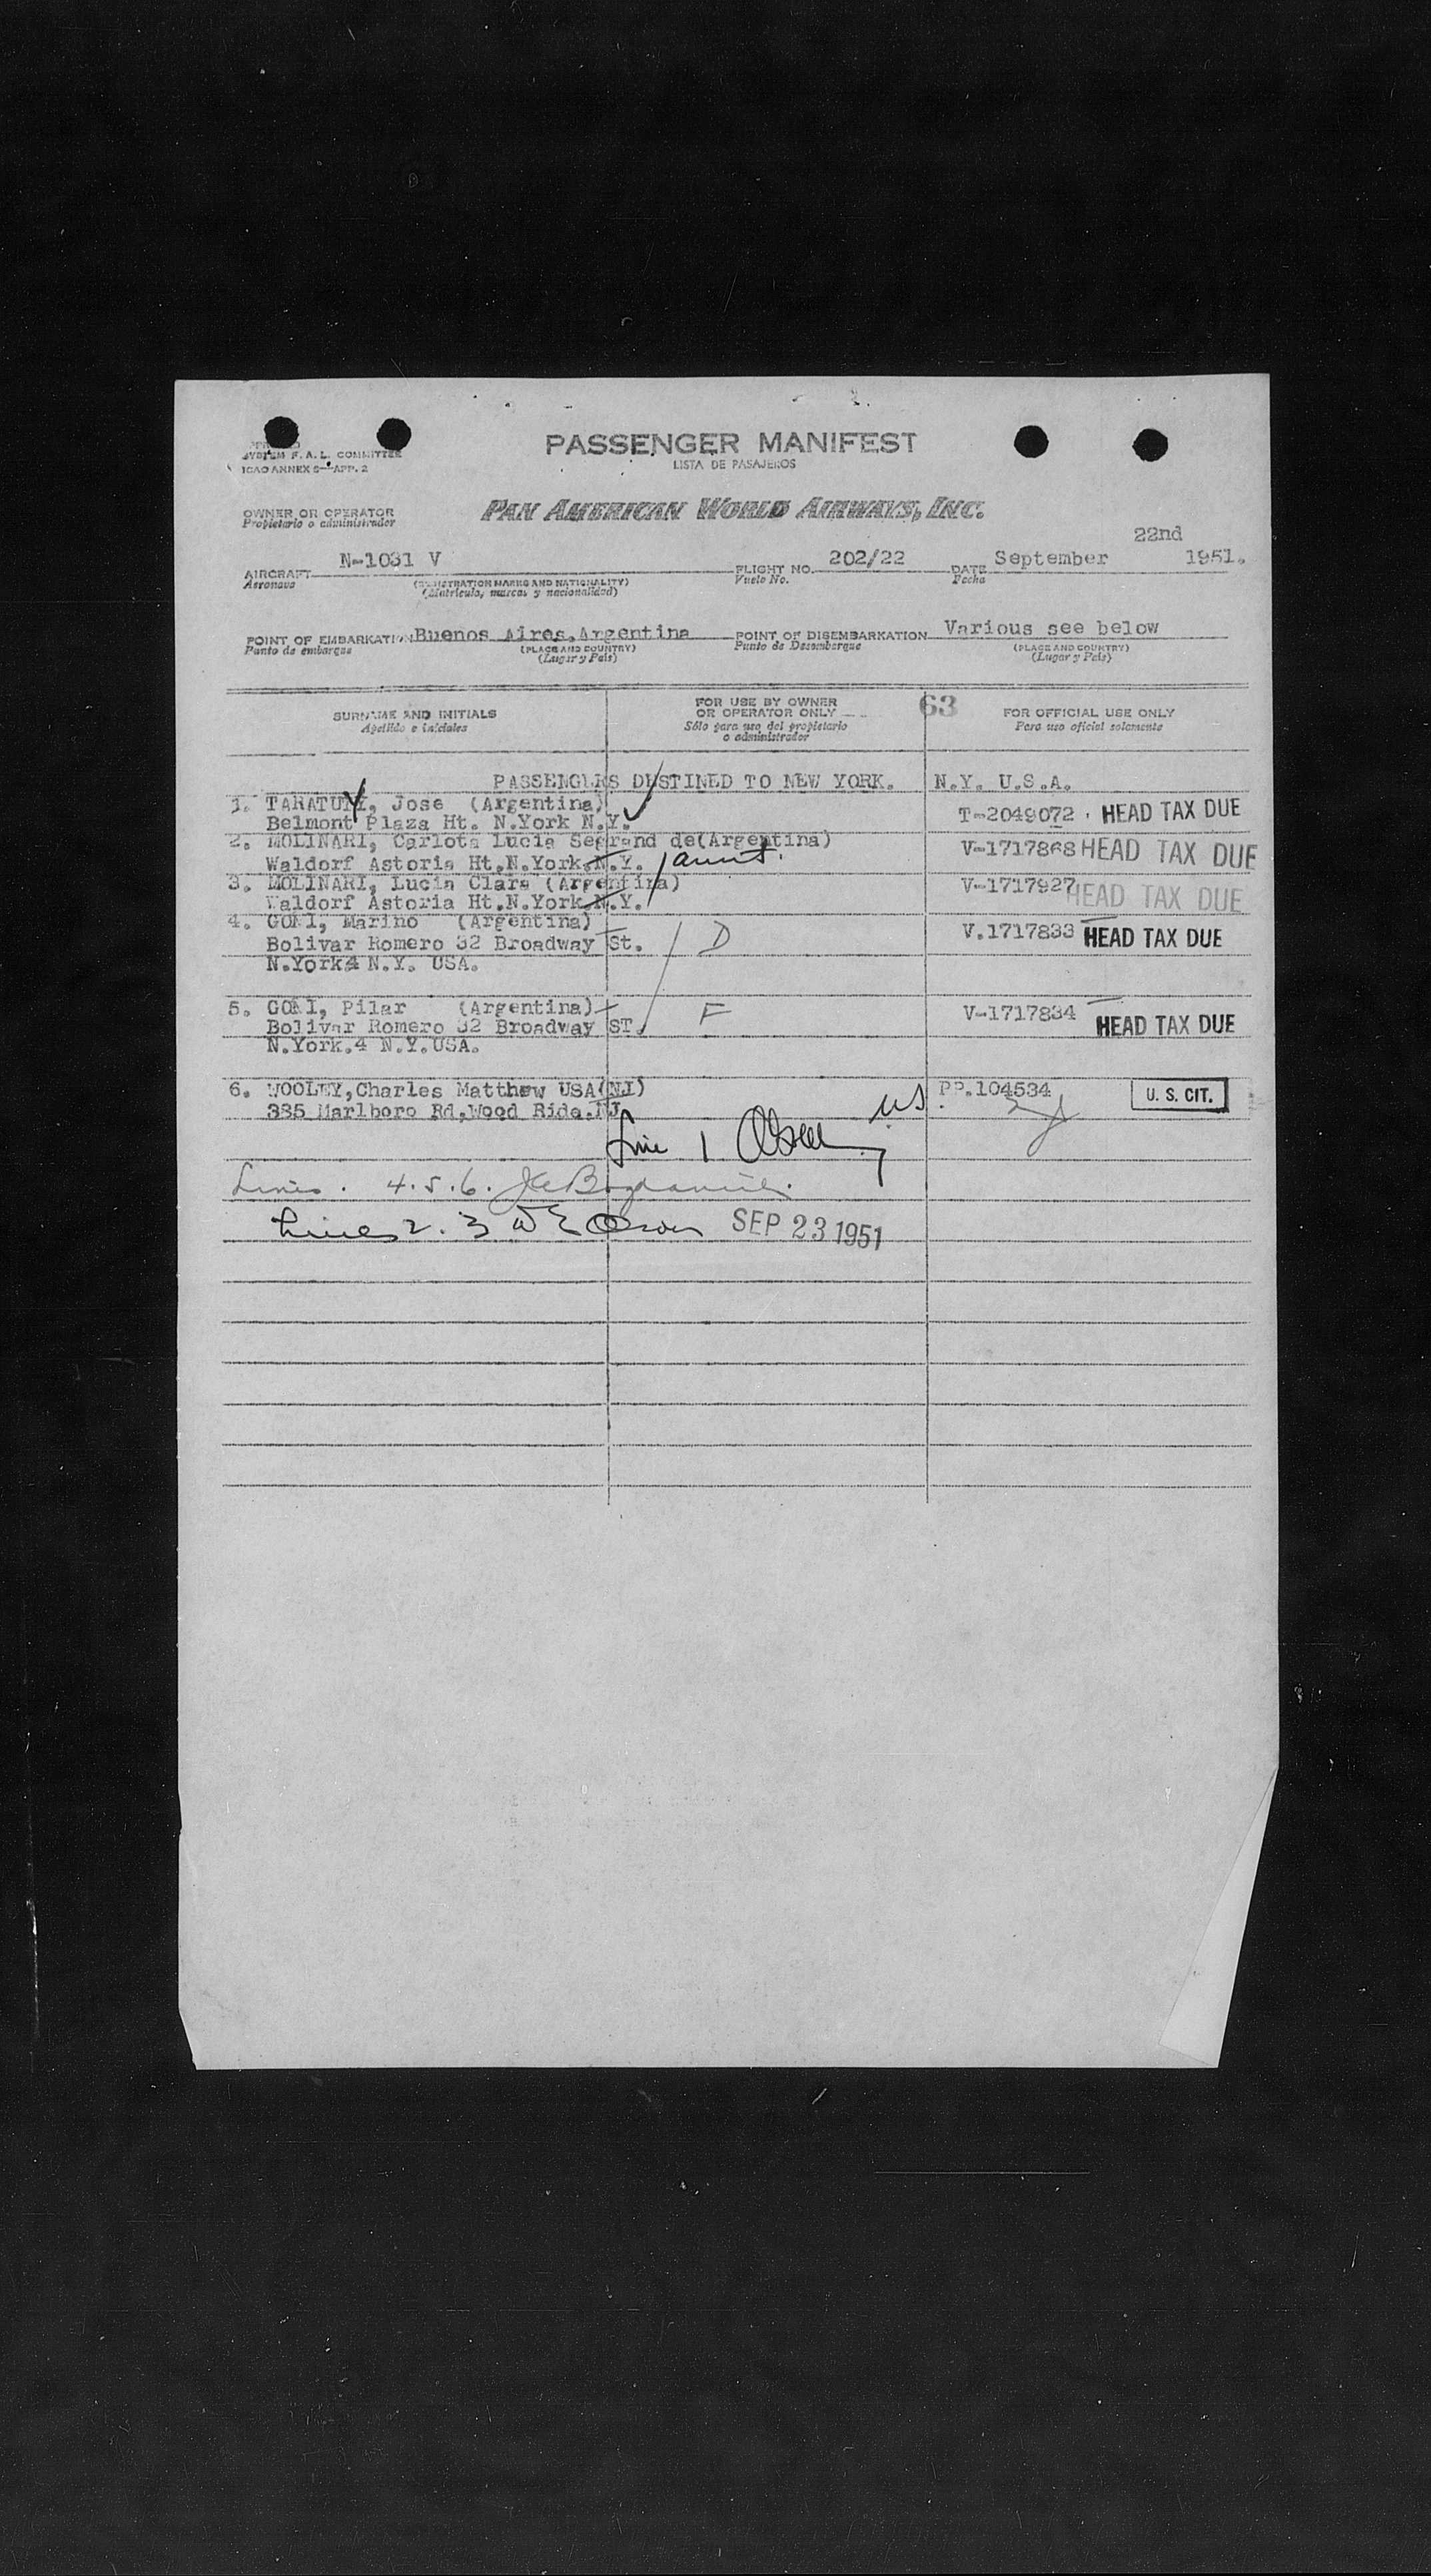 SYSTEM F. A. L. COMMITTEE
ICAO ANNEX 9—APP. 2
PASSENGER MANIFEST
LISTA DE PASAJEROS
OWNER OR OPERATOR
Propietario o administrador
PAN AMERICAN WORLD AIRWAYS, INC.
22nd
AIRCRAFT N-1031 V FLIGHT NO. 202/22 DATE September 1951.
Aeronave (REGISTRATION MARKS AND NATIONALITY) Vuelo No. Fecha
(Matrícula, marcas y nacionalidad)
POINT OF EMBARKATION Buenos Aires,Argentina POINT OF DISEMBARKATION Various see below
Punto de embarque (PLACE AND COUNTRY) Punto de Desembarque (PLACE AND COUNTRY)
(Lugar y País) (Lugar y País)
63
SURNAME AND INITIALS FOR USE BY OWNER OR OPERATOR ONLY FOR OFFICIAL USE ONLY
Apellido e iniciales Sólo para uso del propietario o administrador Para uso oficial solamente
PASSENGERS DESTINED TO NEW YORK. N.Y. U.S.A.
1. Jose (Argentina) T-2049072 HEAD TAX DUE
Belmont Plaza Ht. N.York N.Y.
2. MOLINARI, Carlota Lucia Segrand de(Argentina) V-1717868 HEAD TAX DUE
Waldorf Astoria Ht.N.York.N.Y. aunt.
3. MOLINARI, Lucia Clara (Argentina) V-1717927 HEAD TAX DUE
Waldorf Astoria Ht.N.York.N.Y.
4. GOÑI, Marino (Argentina) V.1717833 HEAD TAX DUE
Bolivar Romero 32 Broadway St. D
N.York4 N.Y. USA.
5. GOÑI, Pilar (Argentina) V-1717834 HEAD TAX DUE
Bolivar Romero 32 Broadway ST. F
N.York.4 N.Y.USA.
6. WOOLEY,Charles Matthew USA(NJ) US PP.104534 U. S. CIT.
385 Marlboro Rd.Wood Ridg.NJ
Line 1
Lines. 4.5.6.
Lines 2. 3 SEP 23 1951